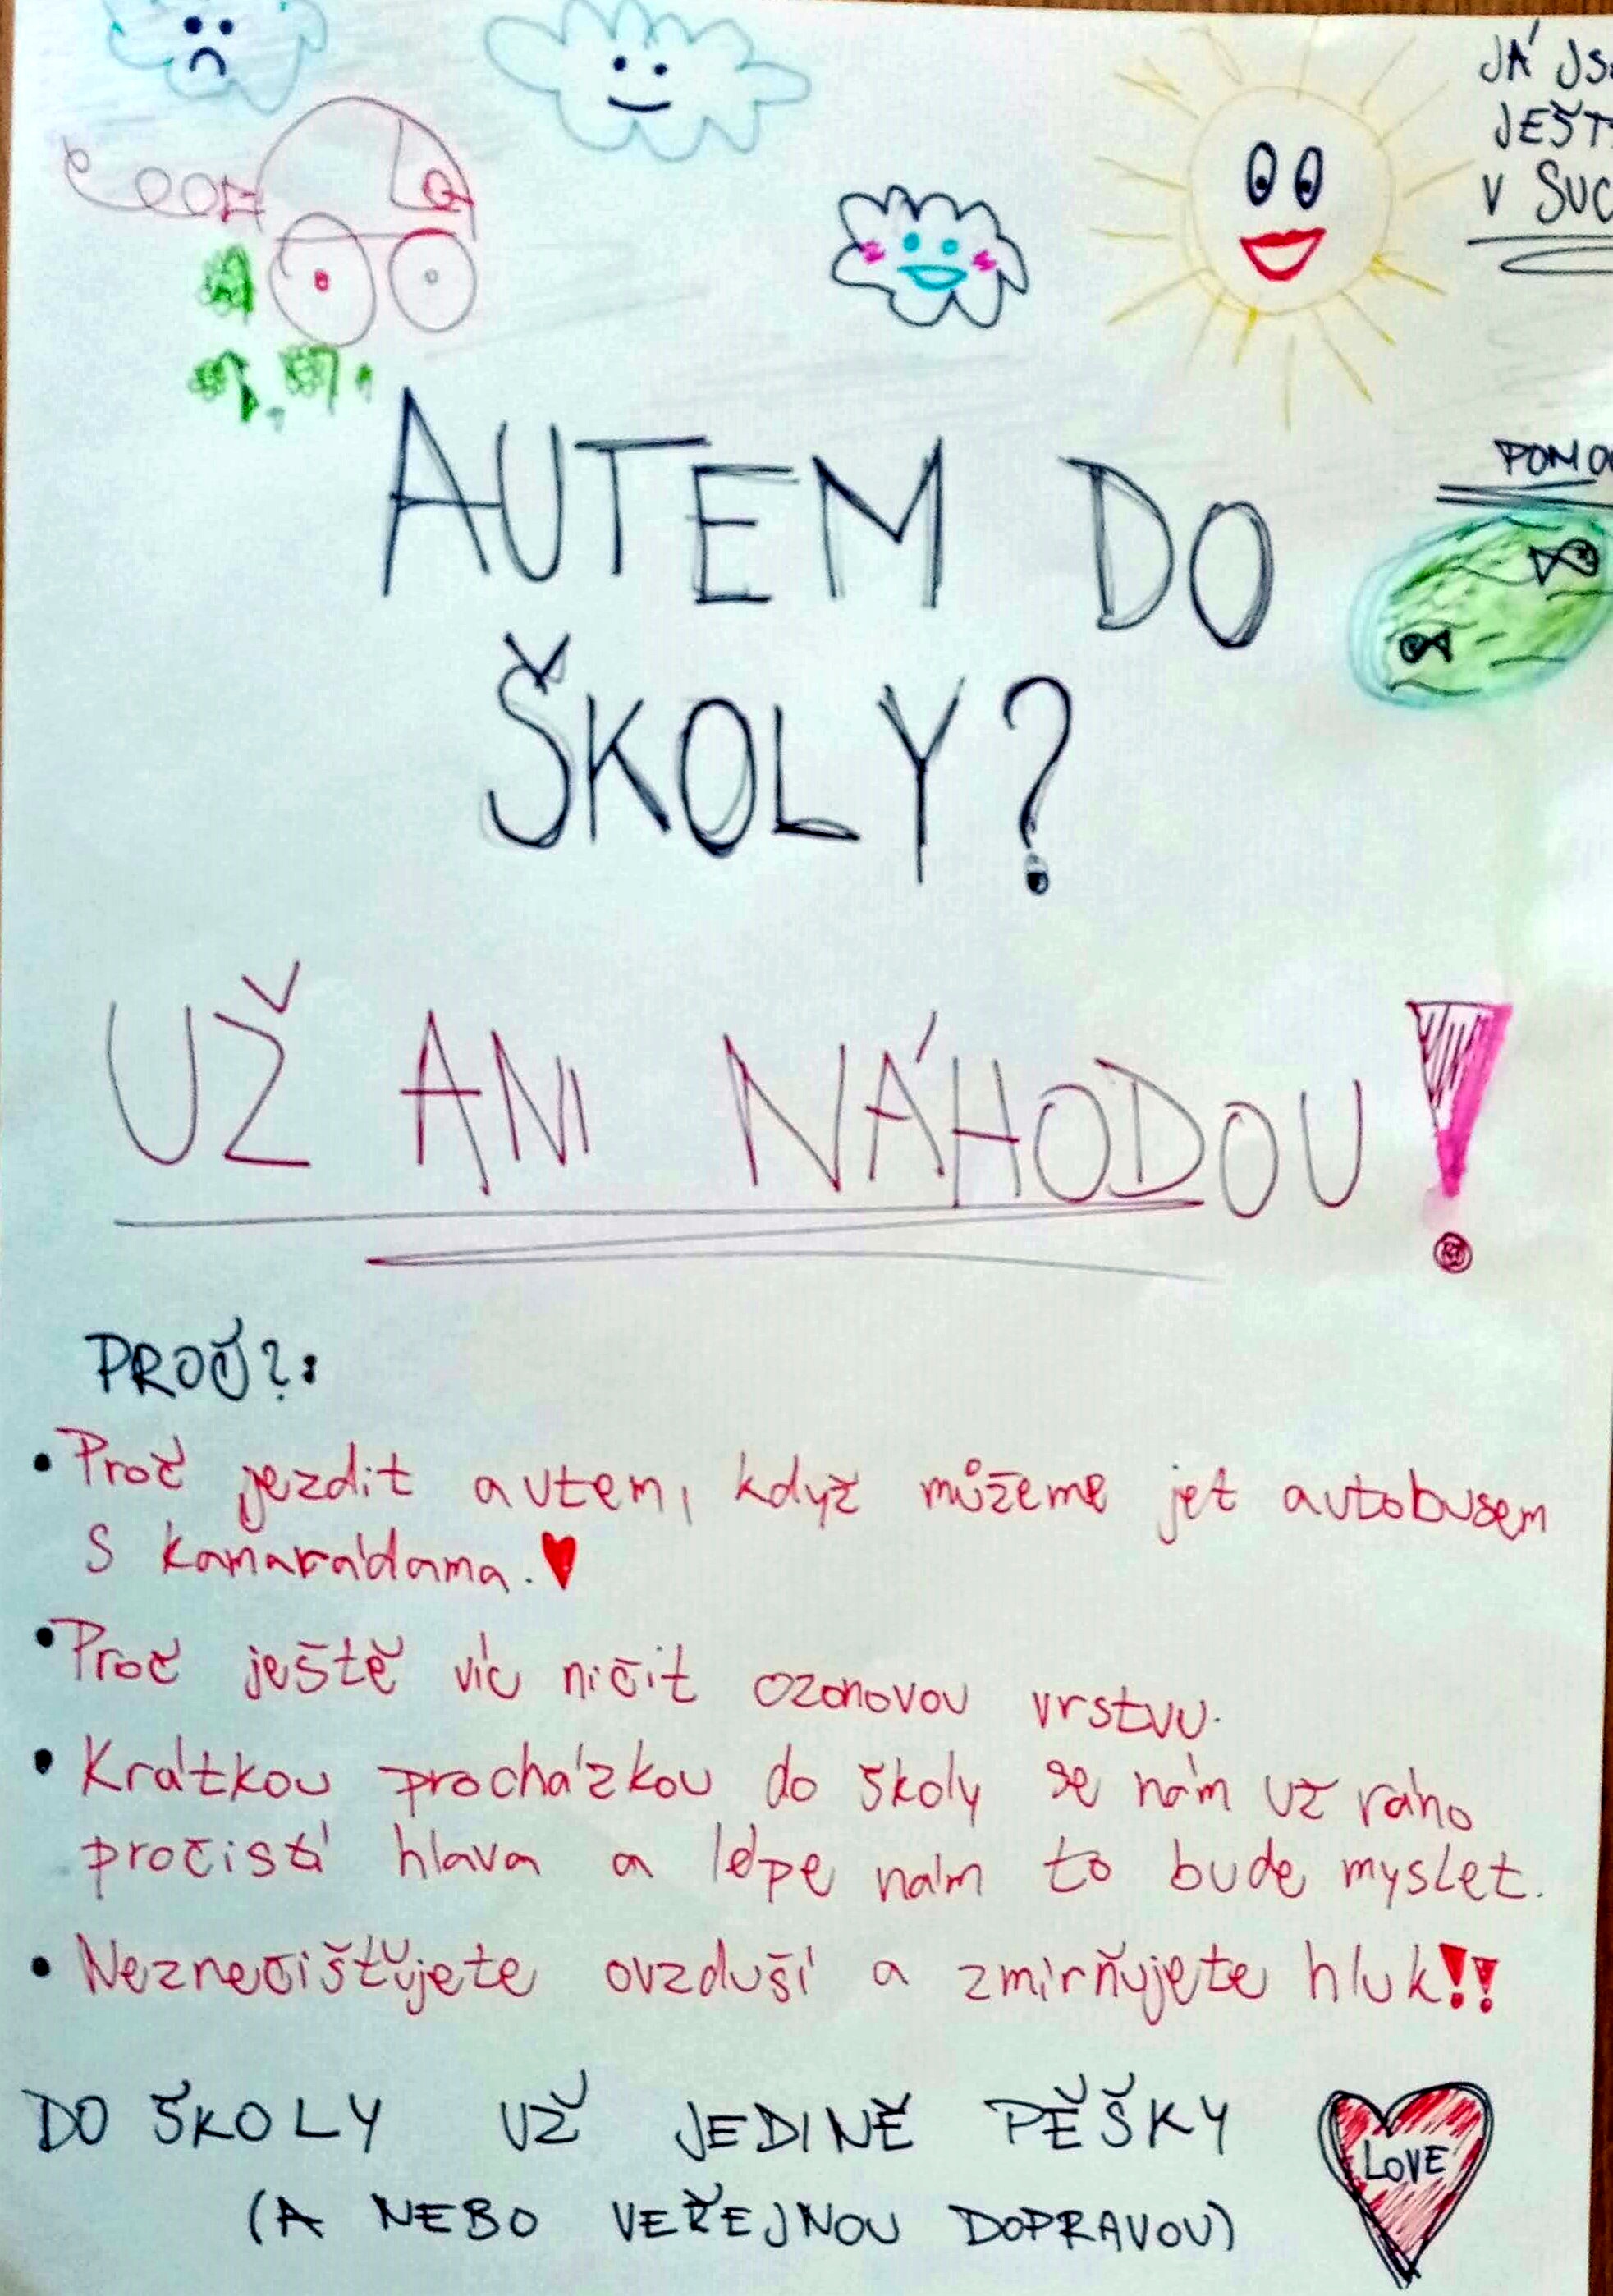 JÁ
V
AUTEM DO
ŠKOLY?
UŽ ANI NÁHODOU!
PROČ?:
• Proč jezdit autem, když můžeme jet autobusem
s kamarádama. ♥
• Proč ještě víc ničit ozonovou vrstvu.
• Krátkou procházkou do školy se nám už ráno
pročistí hlava a lépe nám to bude myslet.
• Neznečišťujete ovzduší a zmírňujete hluk!!
DO ŠKOLY UŽ JEDINĚ PĚŠKY
(A NEBO VEŘEJNOU DOPRAVOU)
LOVE